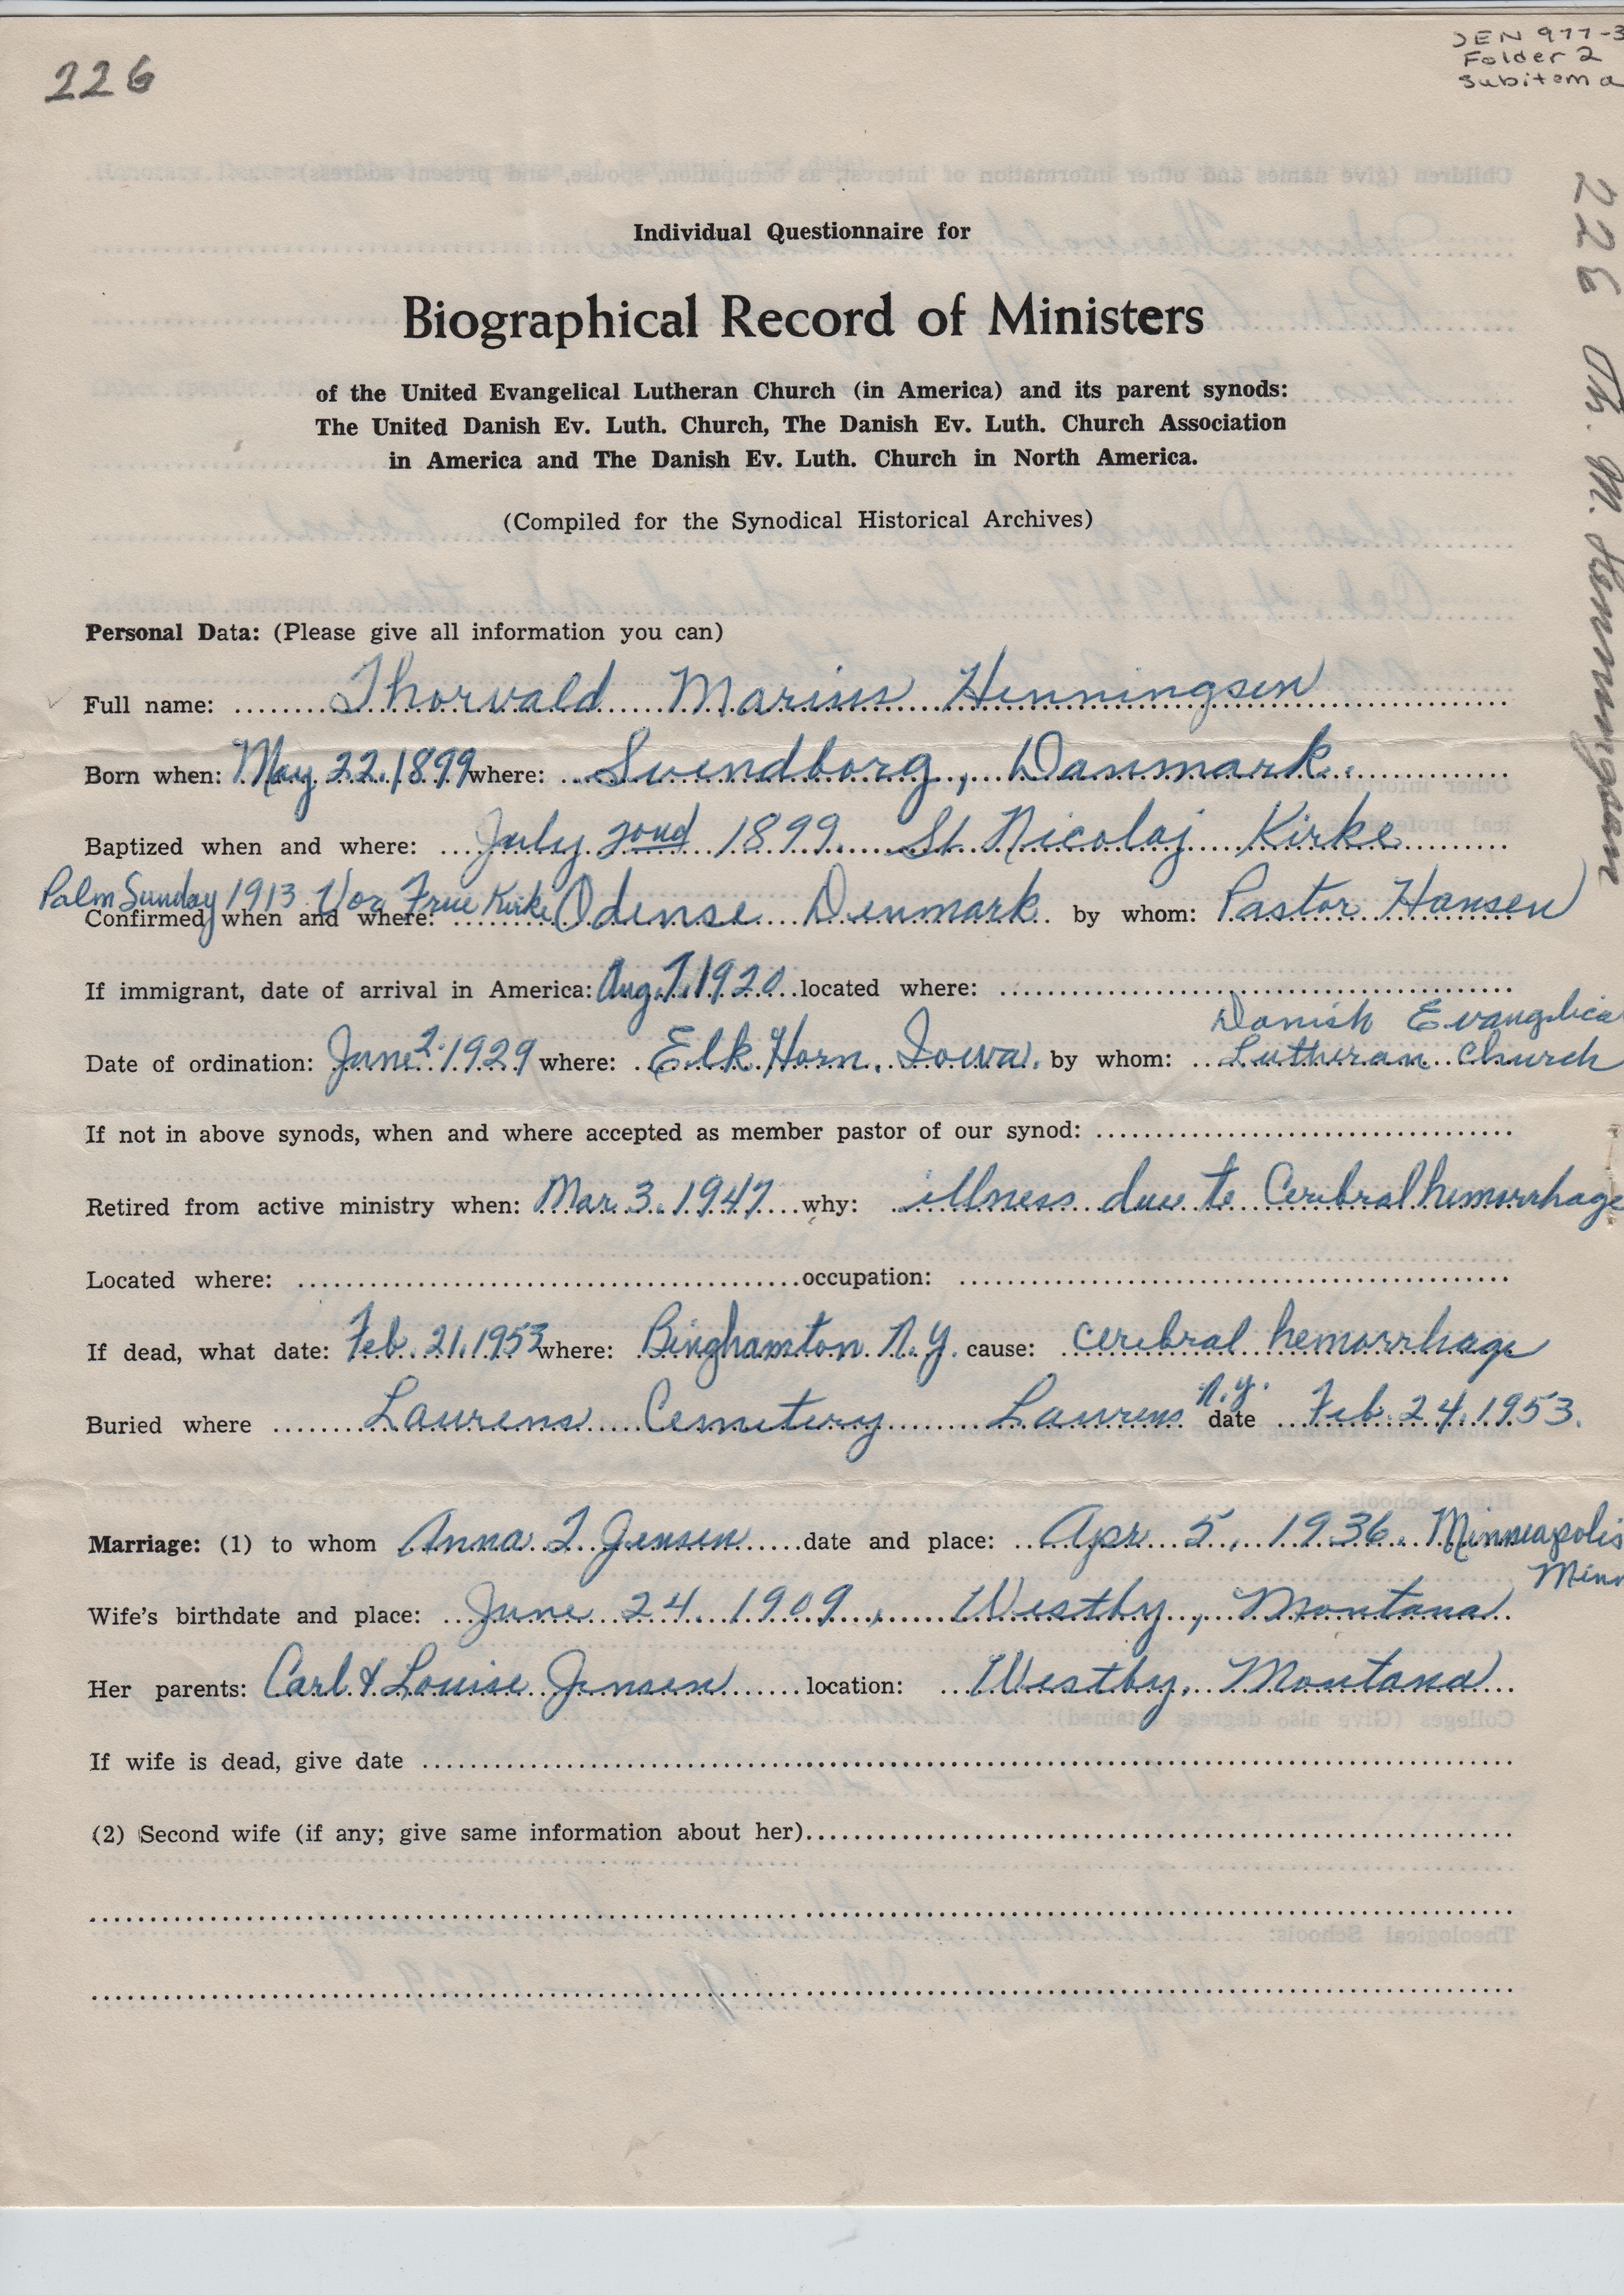 226
DEN 977-3
Folder 2
Subitem a
226 Th. M. Henningsen
Individual Questionnaire for
Biographical Record of Ministers
of the United Evangelical Lutheran Church (in America) and its parent synods:
The United Danish Ev. Luth. Church, The Danish Ev. Luth. Church Association
in America and The Danish Ev. Luth. Church in North America.
(Compiled for the Synodical Historical Archives)
Personal Data: (Please give all information you can)
Full name: Thorvald Marius Henningsen
Born when: May 22, 1899 where: Svendborg, Danmark.
Baptized when and where: July 1899. St Nicolaj Kirke
Palm Sunday 1913 Vor Frue Kirke
Confirmed when and where: Odense Denmark by whom: Pastor Hansen
If immigrant, date of arrival in America: Aug. 7, 1920 located where:
Danish Evangelica
Date of ordination: June 2. 1929 where: Elk Horn, Iowa. by whom: Lutheran Church
If not in above synods, when and where accepted as member pastor of our synod:
Retired from active ministry when: Mar. 3. 1947 why: illness due to Cerebral hemorrhage
Located where: occupation:
If dead, what date: Feb. 21, 1953 where: Binghamton N.Y. cause: cerebral hemorrhage
Buried where Laurens Cemetery Laurens N.Y. date Feb. 24, 1953.
Marriage: (1) to whom Anna I Jensen date and place: Apr 5, 1936. Minneapolis
Minn
Wife's birthdate and place: June 24, 1909, Westby, Montana
Her parents: Carl & Louise Jensen location: Westby, Montana
If wife is dead, give date
(2) Second wife (if any; give same information about her)